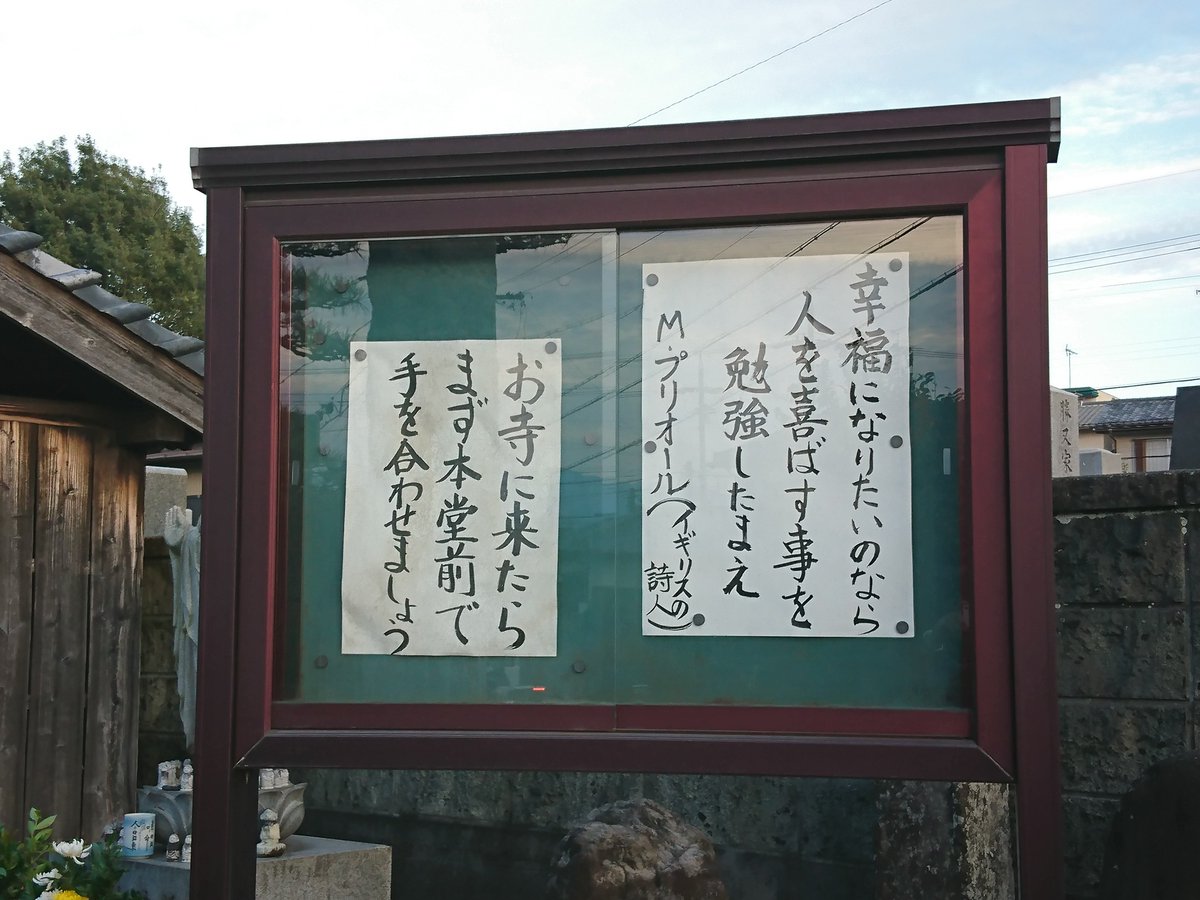 幸福になりたいのなら
人を喜ばす事を
勉強したまえ
M・プリオール(イギリスの
詩人)
お寺に来たら
まず本堂前で
手を合わせましょう